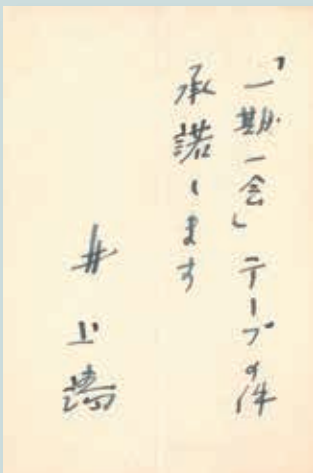 「一期一会」テープの件
承諾します
井上靖